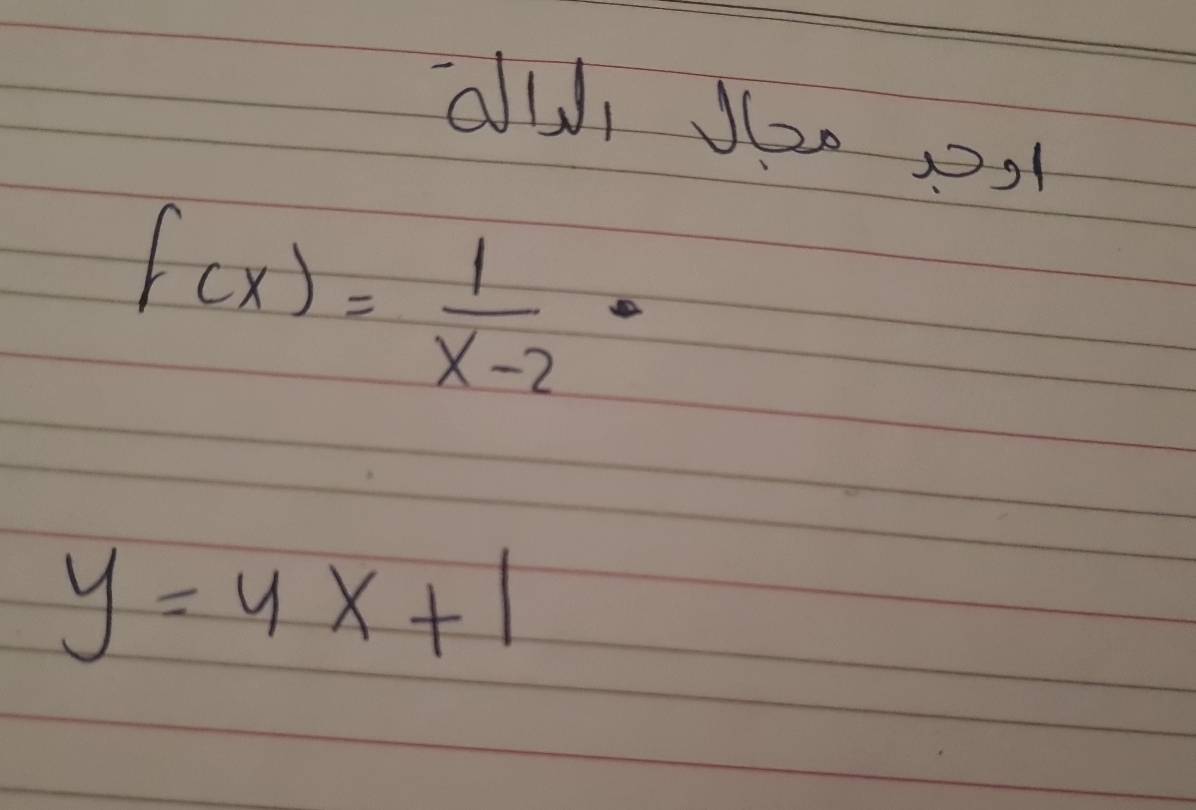 اوجد مجال الدالة
f(x) = 1/(x-2)
y = 4x+1